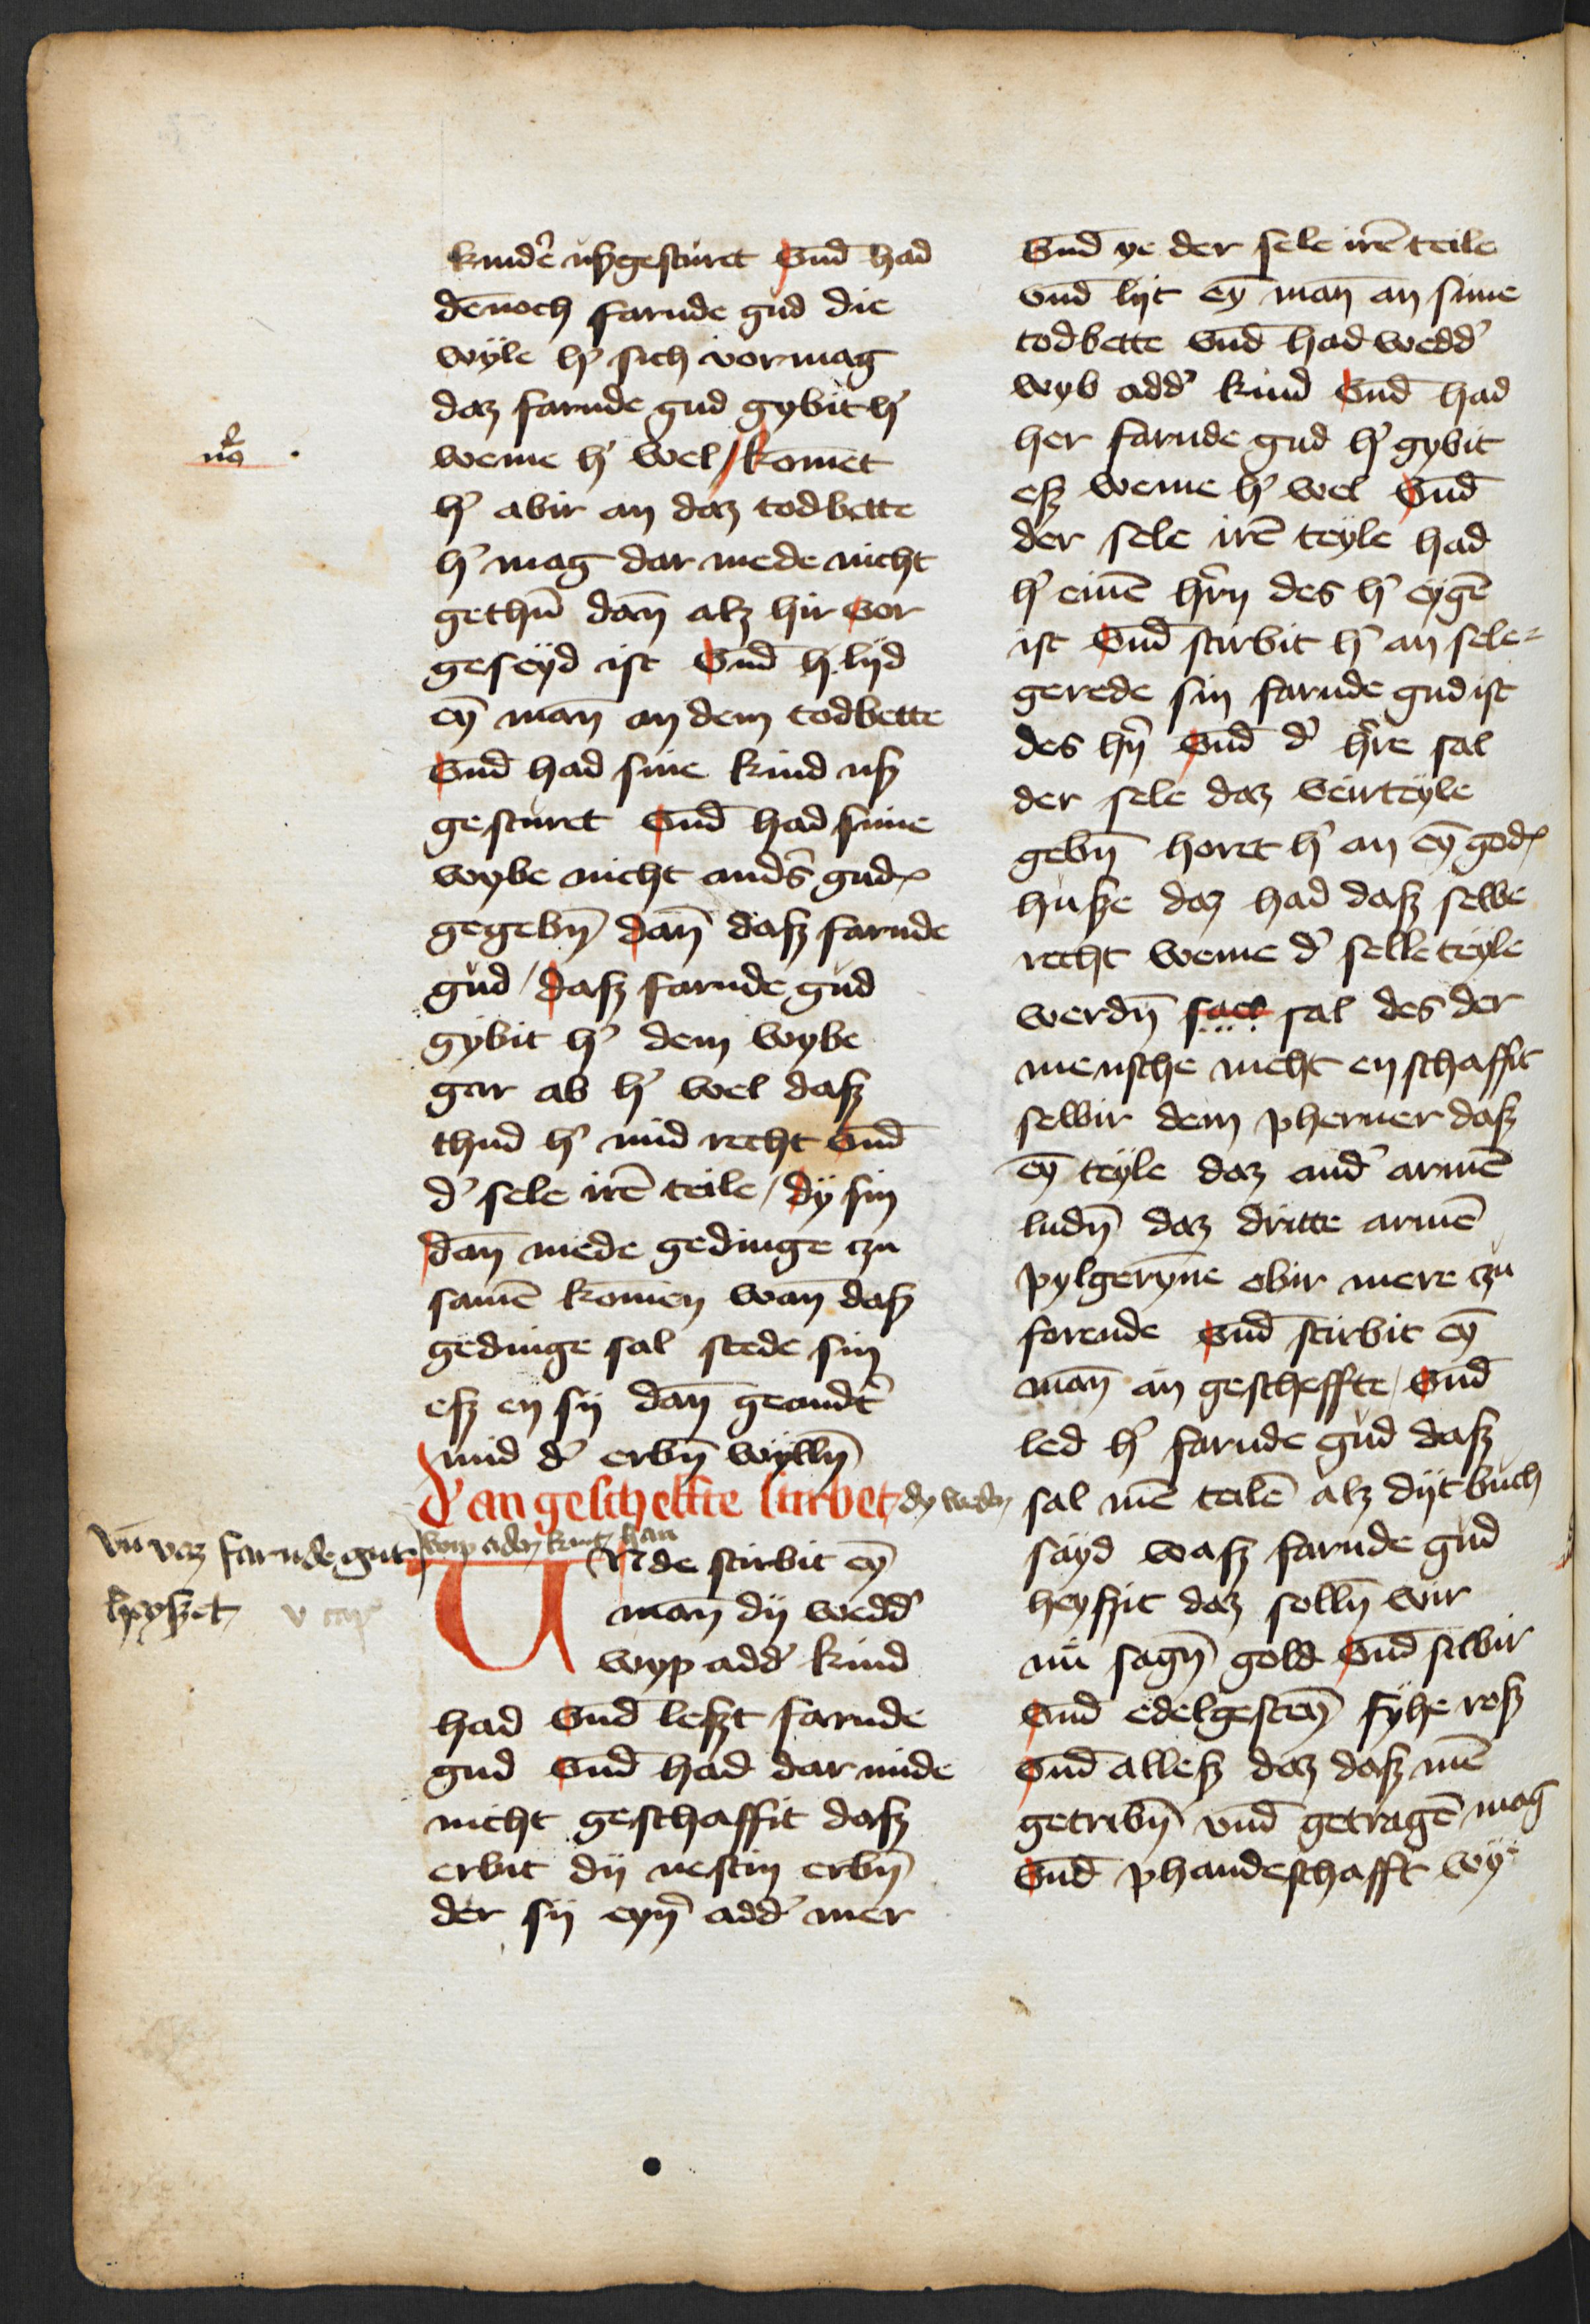 kind'e ußgesturet Vnd had
dēnoch farnde gud die
wyle h' sich vormag
daz farnde gud gybit h'
weme h' wel / komēt
h' abir an daz todbette
h' mag dar mede nicht
gethū dan̄ alz hir vor
geseyd ist Vnd h' lijd
ey̅ man̄ an dem todbette
Vnd had sine kind uß
gesturet Vnd had sime
wybe nicht and's gud
gegebn̄ dan̄ daß farnde
gud / daß farnde gud
gybit h' dem wybe
gar ab h' wel daß
thud h' mid recht Vnd
d' sele irē teile / dy sin
dan̄ mede gedinge czu
samē komen wan̄ daß
gedinge sal stede sin
eß en sij dan̄ geandt'
mid d' erbn̄ wylln̄
d' an gescheffte stirbet dy weder
wip ader kint han
vn̄ waz farnde gut
v cap
Vnde stirbit ey̅
man̄ dij wedd'
wyp add' kind
had Vnd leßt farnde
gud Vnd had dar mide
nicht geschaffit daß
erbit dij nestin erbn̄
der sij eyn̄ add' mer
Vnd ye der sele irē teile
vnd lijt ey̅ man̄ an sime
todbette Vnd had wedd'
wyb add' kind Vnd had
her farnde gud h' gybit
eß weme h' wel Vnd
der sele irē teyle had
h' einē h'rn des h' eygē
ist Vnd stirbit h' an sele-
gerede sin farnde gud ist
des h'n̄ Vnd d' h're sal
der sele daz veirteyle
gebn̄ horet h' an ey̅ god
huße daz had daß selbe
recht weme d' selle teyle
werdn̄ sael sal des der
mensche nicht en schaffit
so wir dem pherner daß
ey̅ teyle daz and' armē
ludn̄ daz dritte armē
pylgeryne obir mere czu
forende Vnd stirbit ey̅
man̄ an gescheffte / Vnd
led h' farnde gud daß
sal mē teilē alz dijt buch
sayd waß farnde gud
heyßit daz solln̄ wir
nu sagn̄ gold Vnd silbir
Vnd edelgesten̄ fyhe roß
Vnd alleß daz daß mē
getribn̄ vnd getragē mag
Vnd phandeschafft wy